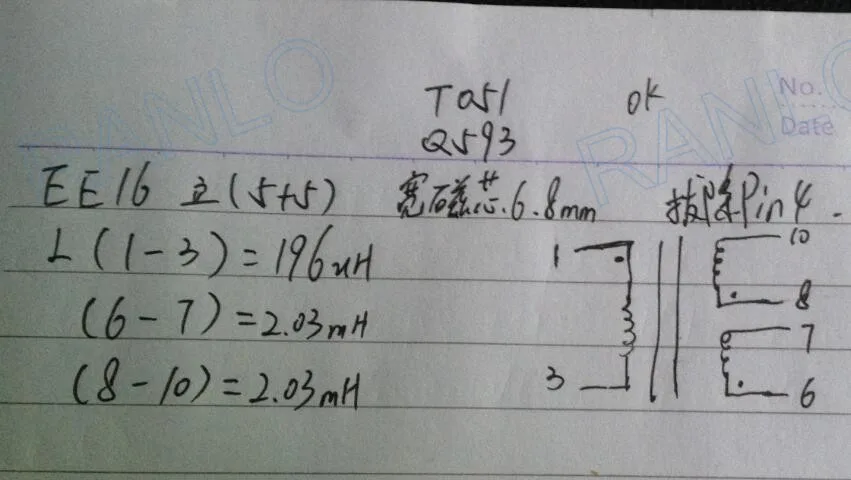 RANLO
RANLO
No.
Date
T051 OK
Q593
EE16 立(5+5) 宽磁芯.6.8mm 拔除Pin4.
L(1-3)=196uH
(6-7)=2.03mH
(8-10)=2.03mH
1
3
10
8
7
6